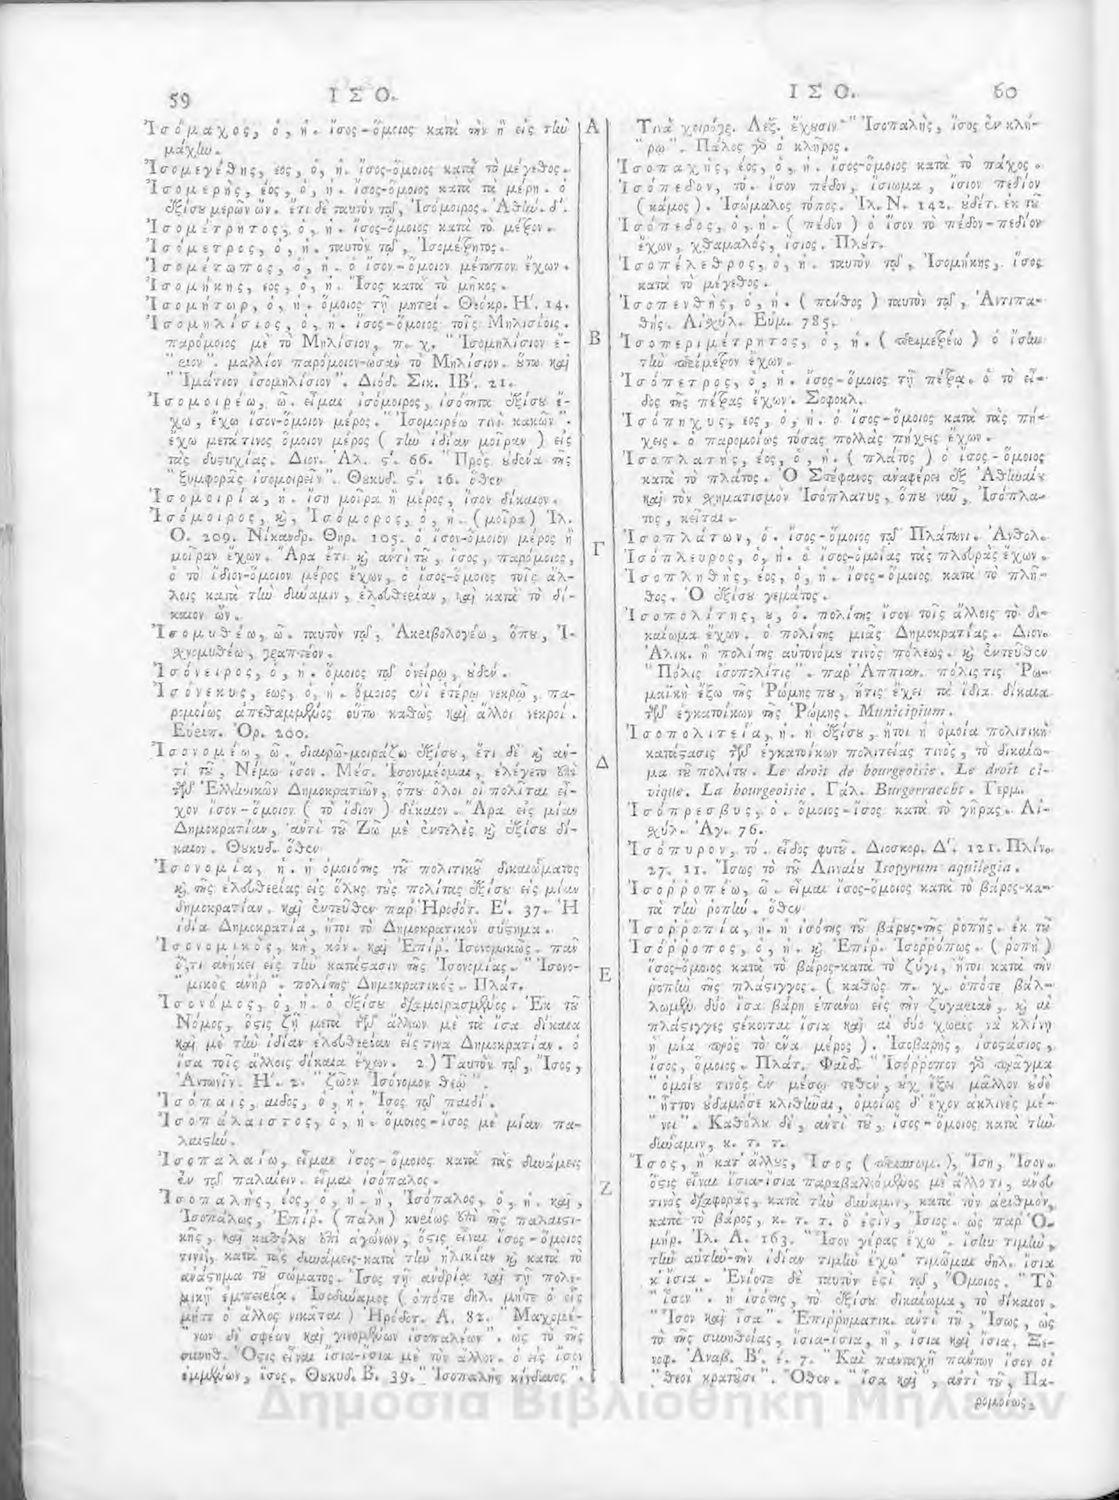 59 ΙΣΟ.
Ἰσόμαχος, ὁ, ἡ. ἴσος-ὅμοιος κατὰ τὴν ἢ εἰς τὴν
μάχην.
Ἰσομεγέθης, εος, ὁ, ἡ. ἴσος-ὅμοιος κατὰ τὸ μέγεθος.
Ἰσομερής, έος, ὁ, ἡ. ἴσος-ὅμοιος κατὰ τὰ μέρη. ὁ
ἐξίσου μερῶν ὤν. ἔτι δὲ ταυτὸν τῷ, Ἰσόμοιρος. Ἀθήν. δ΄.
Ἰσομέτρητος, ὁ, ἡ. ἴσος-ὅμοιος κατὰ τὸ μέτρον.
Ἰσόμετρος, ὁ, ἡ. ταυτὸν τῷ, Ἰσομέτρητος.
Ἰσομέτωπος, ὁ, ἡ. ὁ ἴσον-ὅμοιον μέτωπον ἔχων.
Ἰσομήκης, εος, ὁ, ἡ. Ἴσος κατὰ τὸ μῆκος.
Ἰσομήτωρ, ὁ, ἡ. ὅμοιος τῇ μητρί. Θεόκρ. Η΄. 14.
Ἰσομηλίσιος, ὁ, ἡ. ἴσος-ὅμοιος τοῖς Μηλισίοις.
παρόμοιος μὲ τὸ Μηλίσιον, π. χ. "Ἰσομηλίσιον ἔ-
"ριον". μαλλίον παρόμοιον-ὡσὰν τὸ Μηλίσιον. οὕτω καὶ
"Ἱμάτιον ἰσομηλίσιον". Διόδ. Σικ. ΙΒ΄. 21.
Ἰσομοιρέω, ῶ. εἶμαι ἰσόμοιρος, ἰσότητα ἐξίσου ἔ-
χω, ἔχω ἴσον-ὅμοιον μέρος. "Ἰσομοιρέω τινὶ κακῶν".
ἔχω μετά τινος ὅμοιον μέρος ( τὴν ἰδίαν μοῖραν ) εἰς
τὰς δυςυχίας. Διον. Ἁλ. ς΄. 66. "Πρὸς οὐδένα τῆς
"ξυμφορᾶς ἰσομοιρεῖν". Θουκυδ. ς΄. 16. ὅθεν
Ἰσομοιρία, ἡ. ἴση μοῖρα ἢ μέρος, ἴσον δίκαιον.
Ἰσόμοιρος, καὶ, Ἰσόμορος, ὁ, ἡ. (μοῖρα) Ἰλ.
Ο. 209. Νίκανδρ. Θηρ. 105. ὁ ἴσον-ὅμοιον μέρος ἢ
μοῖραν ἔχων. Ἄρα ἔτι καὶ ἀντὶ τοῦ, ἴσος, παρόμοιος,
ὁ τὸ ἴδιον-ὅμοιον μέρος ἔχων, ὁ ἴσος-ὅμοιος τοῖς ἄλ-
λοις κατὰ τὴν δύναμιν, ἐλευθερίαν, καὶ κατὰ τὸ δί-
καιον ὤν.
Ἰσομυθέω, ῶ. ταυτὸν τῷ, Ἀκριβολογέω, ὅπου, Ἰ-
σχνομυθέω, γραπτέον.
Ἰσόνειρος, ὁ, ἡ. ὅμοιος τῷ ὀνείρῳ, οὐδέν.
Ἰσόνεκυς, εως, ὁ, ἡ. ὅμοιος ἑνὶ ἑτέρῳ νεκρῷ, πα-
ρομοίως ἀπεθαμμένος οὕτω καθὼς καὶ ἄλλοι νεκροί.
Εὐριπ. Ὀρ. 200.
Ἰσονομέω, ῶ. διαιρῶ-μοιράζω ἐξίσου, ἔτι δὲ καὶ ἀν-
τὶ τοῦ, Νέμω ἴσον. Μέσ. Ἰσονομέομαι, ἐλέγετο ἐπὶ
τῶν Ἑλληνικῶν Δημοκρατιῶν, ὅπου ὅλοι οἱ πολῖται εἶ-
χον ἴσον-ὅμοιον ( τὸ ἴδιον ) δίκαιον. Ἄρα εἰς μίαν
Δημοκρατίαν, ἀντὶ τοῦ Ζῶ μὲ ἐντελὲς καὶ ἐξίσου δί-
καιον. Θουκυδ. ὅθεν
Ἰσονομία, ἡ. ἡ ὁμοιότης τοῦ πολιτικοῦ δικαιώματος
καὶ τῆς ἐλευθερίας εἰς ὅλους τοὺς πολίτας ἐξίσου εἰς μίαν
δημοκρατίαν. καὶ ἐντεῦθεν παρ' Ἡροδότ. Ε΄. 37. Ἡ
ἰδία Δημοκρατία, ἤτοι τὸ Δημοκρατικὸν σύςημα.
Ἰσονομικὸς, κὴ, κόν. καὶ Ἐπίρ. Ἰσονομικῶς. πᾶν
ὅ,τι ἀνήκει εἰς τὴν κατάςασιν τῆς Ἰσονομίας. "Ἰσονο-
"μικὸς ἀνήρ". πολίτης Δημοκρατικός. Πλάτ.
Ἰσονόμος, ὁ, ἡ. ὁ ἐξίσου διαμοιρασμένος. Ἐκ τοῦ
Νόμος, ὅςις ζῇ μετὰ τῶν ἄλλων μὲ τὰ ἴσα δίκαια
καὶ μὲ τὴν ἰδίαν ἐλευθερίαν εἴς τινα Δημοκρατίαν. ὁ
ἴσα τοῖς ἄλλοις δίκαια ἔχων. 2) Ταυτὸν τῷ, Ἴσος,
Ἀντωνῖν. Η΄. 2. "ζῶον Ἰσόνομον θεῷ".
Ἰσόπαις, αιδος, ὁ, ἡ. Ἴσος τῷ παιδί.
Ἰσοπάλαιστος, ὁ, ἡ. ὅμοιος-ἴσος μὲ μίαν πα-
λαιςήν.
Ἰσοπαλαίω, εἶμαι ἴσος-ὅμοιος κατὰ τὰς δυνάμεις
ἐν τῷ παλαίειν. εἶμαι ἰσόπαλος.
Ἰσοπαλής, έος, ὁ, ἡ. ἢ, Ἰσόπαλος, ὁ, ἡ. καὶ,
Ἰσοπάλως, Ἐπίρ. ( πάλη ) κυρίως ἐπὶ τῆς παλαιςι-
κῆς, καὶ καθόλου ἐπὶ ἀγώνων, ὅςις εἶναι ἴσος-ὅμοιος
τινὶ, κατὰ τὰς δυνάμεις-κατὰ τὴν ἡλικίαν καὶ κατὰ τὸ
ἀνάςημα τοῦ σώματος. Ἴσος τῇ ἀνδρίᾳ καὶ τῇ πολε-
μικῇ ἐμπειρίᾳ. Ἰσοδύναμος ( ὁπότε δηλ. μήτε ὁ εἷς
μήτε ὁ ἄλλος νικᾶται ) Ἡρόδοτ. Α. 82. "Μαχομέ-
"νων δὲ σφέων καὶ γινομένων ἰσοπαλέων". ὡς τὸ τῆς
συνηθ. Ὅςις εἶναι ἴσια-ἴσια μὲ τὸν ἄλλον. ὁ εἰς ἴσον
ἐμμένων, ἴσος. Θουκυδ. Β. 39. "Ἰσοπαλὴς κίνδυνος".
Α
Β
Γ
Δ
Ε
Ζ
ΙΣΟ. 60
Τινὰ χειρόγρ. Λεξ. ἔχουσιν "Ἰσοπαλὴς, ἴσος ἐν κλή-
"ρῳ". Πάλος γὰρ ὁ κλῆρος.
Ἰσοπαχής, έος, ὁ, ἡ. ἴσος-ὅμοιος κατὰ τὸ πάχος.
Ἰσόπεδον, τό. ἴσον πέδον, ἰσίωμα, ἴσιον πεδίον
( κάμος ). Ἰσώμαλος τόπος. Ἰλ. Ν. 142. οὐδέτ. ἐκ τοῦ
Ἰσόπεδος, ὁ, ἡ. ( πέδον ) ὁ ἴσον τὸ πέδον-πεδίον
ἔχων, χθαμαλός, ἴσιος. Πλουτ.
Ἰσοπέλεθρος, ὁ, ἡ. ταυτὸν τῷ, Ἰσομήκης, ἴσος
κατὰ τὸ μέγεθος.
Ἰσοπενθής, ὁ, ἡ. ( πένθος ) ταυτὸν τῷ, Ἀντιπα-
θής. Αἰσχύλ. Εὐμ. 785.
Ἰσοπεριμέτρητος, ὁ, ἡ. ( περιμετρέω ) ὁ ἴσην
τὴν περίμετρον ἔχων.
Ἰσόπετρος, ὁ, ἡ. ἴσος-ὅμοιος τῇ πέτρᾳ. ὁ τὸ εἶ-
δος τῆς πέτρας ἔχων. Σοφοκλ.
Ἰσόπηχυς, εος, ὁ, ἡ. ὁ ἴσος-ὅμοιος κατὰ τὰς πή-
χεις. ὁ παρομοίως τόσας πολλὰς πήχεις ἔχων.
Ἰσοπλατής, έος, ὁ, ἡ. ( πλάτος ) ὁ ἴσος-ὅμοιος
κατὰ τὸ πλάτος. Ὁ Στέφανος ἀναφέρει ἐξ Ἀθηναίου
καὶ τὸν σχηματισμὸν Ἰσόπλατυς, ὅπου νῦν, Ἰσόπλα-
τος, κεῖται.
Ἰσοπλάτων, ὁ. ἴσος-ὅμοιος τῷ Πλάτωνι. Ἀνθολ.
Ἰσόπλευρος, ὁ, ἡ. ὁ ἴσος-ὁμοίας τὰς πλευρὰς ἔχων.
Ἰσοπληθής, έος, ὁ, ἡ. ἴσος-ὅμοιος κατὰ τὸ πλῆ-
θος. Ὁ ἐξίσου γεμάτος.
Ἰσοπολίτης, ου, ὁ. πολίτης ἴσον τοῖς ἄλλοις τὸ δι-
καίωμα ἔχων. ὁ πολίτης μιᾶς Δημοκρατίας. Διον.
Ἁλικ. ἢ πολίτης αὐτονόμου τινὸς πόλεως. καὶ ἐντεῦθεν
"Πόλις ἰσοπολίτις". παρ' Ἀππιαν. πόλις τις Ῥω-
μαϊκὴ ἔξω τῆς Ῥώμης που, ἥτις ἔχει τὰ ἴδια δίκαια
τῶν ἐγκατοίκων τῆς Ῥώμης. Municipium.
Ἰσοπολιτεία, ἡ. ἡ ἐξίσου, ἤτοι ἡ ὁμοία πολιτικὴ
κατάςασις τῶν ἐγκατοίκων πολιτείας τινός, τὸ δικαίω-
μα τοῦ πολίτου. Le droit de bourgeoisie. Le droit ci-
vique. La bourgeoisie. Γάλ. Burgerraecht. Γερμ.
Ἰσόπρεσβυς, ὁ. ὅμοιος-ἴσος κατὰ τὸ γῆρας. Αἰ-
σχύλ. Ἀγ. 76.
Ἰσόπυρον, τό. εἶδος φυτοῦ. Διοσκορ. Δ΄. 121. Πλίν.
27. 11. Ἴσως τὸ τοῦ Λινναίου Isopyrum aquilegia.
Ἰσορροπέω, ῶ. εἶμαι ἴσος-ὅμοιος κατὰ τὸ βάρος-κα-
τὰ τὴν ῥοπήν. ὅθεν
Ἰσορροπία, ἡ. ἡ ἰσότης τοῦ βάρους-τῆς ῥοπῆς. ἐκ τοῦ
Ἰσόρροπος, ὁ, ἡ. καὶ Ἐπίρ. Ἰσορρόπως. ( ῥοπὴ )
ἴσος-ὅμοιος κατὰ τὸ βάρος-κατὰ τὸ ζύγι, ἤτοι κατὰ τὴν
ῥοπὴν τῆς πλάςιγγος. ( καθὼς π. χ. ὁπότε βάλ-
λωμεν δύο ἴσα βάρη ἐπάνω εἰς τὴν ζυγαριὰν, καὶ αἱ
πλάςιγγες ςέκονται ἴσια καὶ αἱ δύο χωρὶς νὰ κλίνῃ
ἡ μία πρὸς τὸ ἕνα μέρος ). Ἰσοβαρής, ἰσοςάσιος,
ἴσος, ὅμοιος. Πλάτ. Φαίδ. "Ἰσόρροπον γὰρ πρᾶγμα
"ὁμοίου τινὸς ἐν μέσῳ τεθὲν, οὐχ ἕξει μᾶλλον οὐδὲ
"ἧττον οὐδαμόσε κλιθῆναι, ὁμοίως δ' ἔχον ἀκλινὲς μέ-
"νει". Καθόλου δὲ, ἀντὶ τοῦ, ἴσος-ὅμοιος κατὰ τὴν
δύναμιν, κ. τ. τ.
Ἴσος, ἢ κατ' ἄλλους, Ἶσος ( περισπωμ. ), Ἴση, Ἴσον.
ὅςις εἶναι ἴσια-ἴσια παραβαλλόμενος μὲ ἄλλο τι, ἄνευ
τινὸς διαφορᾶς, κατὰ τὴν δύναμιν, κατὰ τὸν ἀριθμὸν,
κατὰ τὸ βάρος, κ. τ. τ. ὅ ἐςιν, Ἴσιος. ὡς παρ' Ὁ-
μήρ. Ἰλ. Α. 163. "Ἴσον γέρας ἔχω". ἴσην τιμὴν,
τὴν αὐτὴν-τὴν ἰδίαν τιμὴν ἔχω· τιμῶμαι δηλ. ἴσια
κ' ἴσια. Ἐνίοτε δὲ ταυτὸν ἐςὶ τῷ, Ὅμοιος. "Τὸ
"ἴσον". ἡ ἰσότης, τὸ ἐξίσου δικαίωμα, τὸ δίκαιον.
"Ἴσον καὶ ἴσα". Ἐπιρρηματικ. ἀντὶ τοῦ, Ἴσως, ὡς
τὸ τῆς συνηθείας, ἴσια-ἴσια, ἢ, ἴσια καὶ ἴσια. Ξε-
νοφ. Ἀναβ. Β΄. ε. 7. "Καὶ πανταχῇ πάντων ἴσον οἱ
"θεοὶ κρατοῦσι". Ὅθεν. "ἴσα καὶ", ἀντὶ τοῦ, Πα-
ρομοίως,
Δημόσια Βιβλιοθήκη Μηλεών